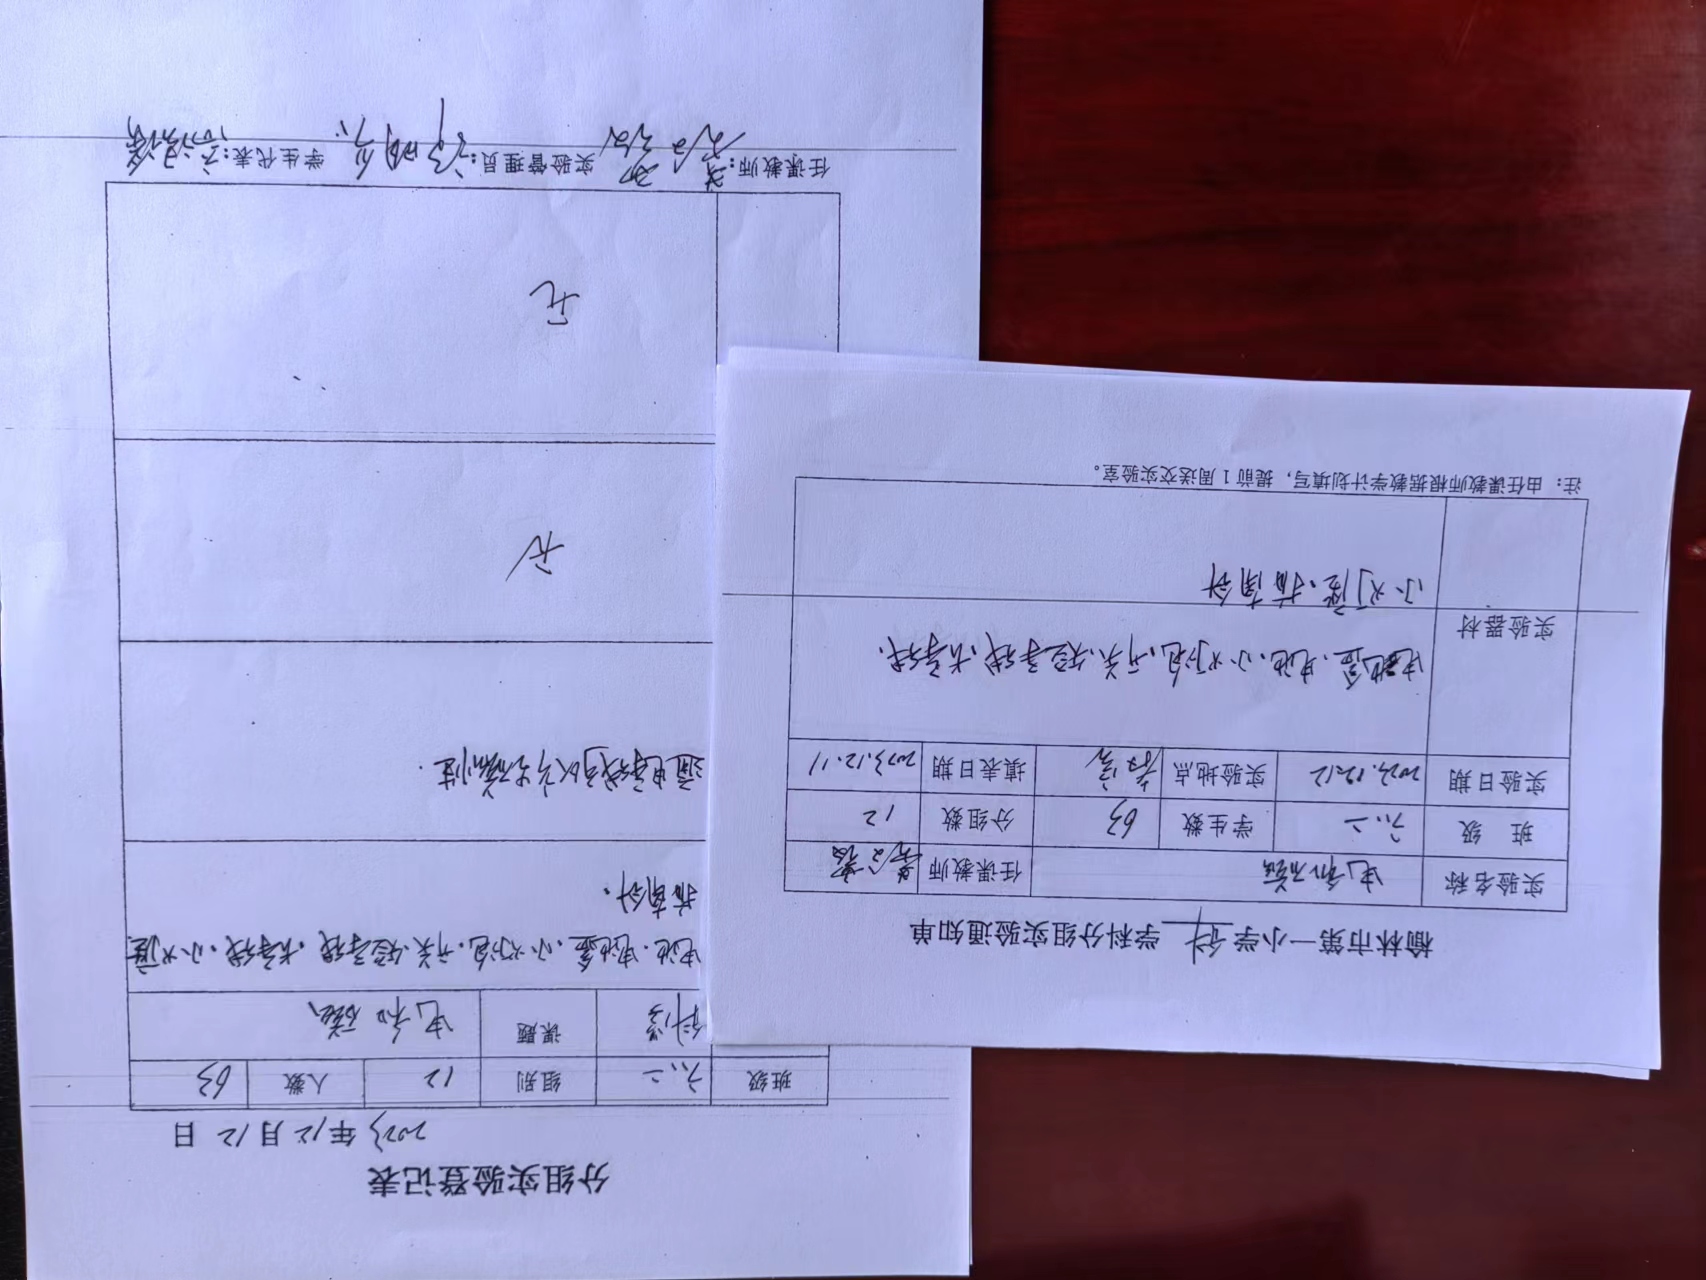 榆林市第一小学 科 学科分组实验通知单
实验名称 电和磁 任课教师
班 级 六.二 学生数 63 分组数 12
实验日期 2023.12.12 实验地点 填表日期 2023.12.11
实验器材 电池盒.电池.小灯泡.开关.短导线.长导线.
小灯座.指南针
注: 由任课教师根据教学计划填写, 提前1周送交实验室。
分组实验登记表
2023年12月12日
班级 六.二 组别 12 人数 63
科学 课题 电和磁
电池.电池盒.小灯泡.开关.短导线.长导线.小灯座
指南针.
通电导线可以产生磁性.
无
无
任课教师: 实验管理员: 学生代表: